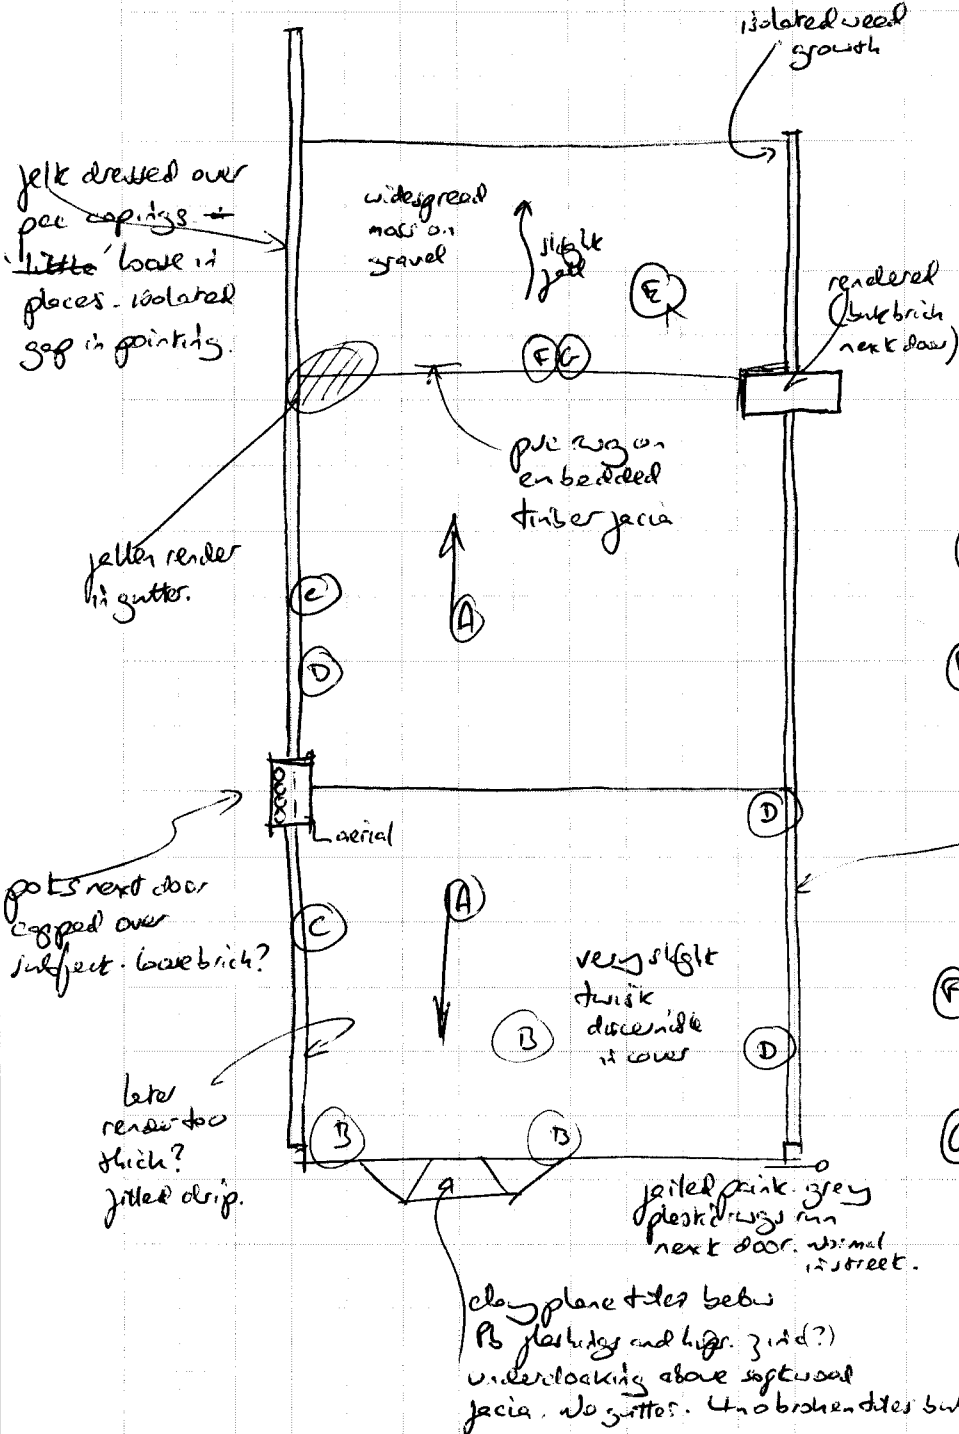 isolated weed
growth
felt dressed over
pcc copings -
'little' loose in
places - isolated
gap in pointing.
widespread
moss on
gravel
slight
fall
E
rendered
(but brick
next door)
F G
pvc rwg on
embedded
timber facia
fallen render
in gutter.
C
A
D
D
aerial
pots next door
capped over
subject. loose brick?
A
C
very slight
twist
discernible
in cover
B
D
later
render too
thick?
filled drip.
B
B
failed paint. grey
plastic rwgs run
next door. normal
in street.
clay plane tiles below
Pb flashings and hips. zinc(?)
undercloaking above softwood
facia. No gutter. 4no broken tiles but